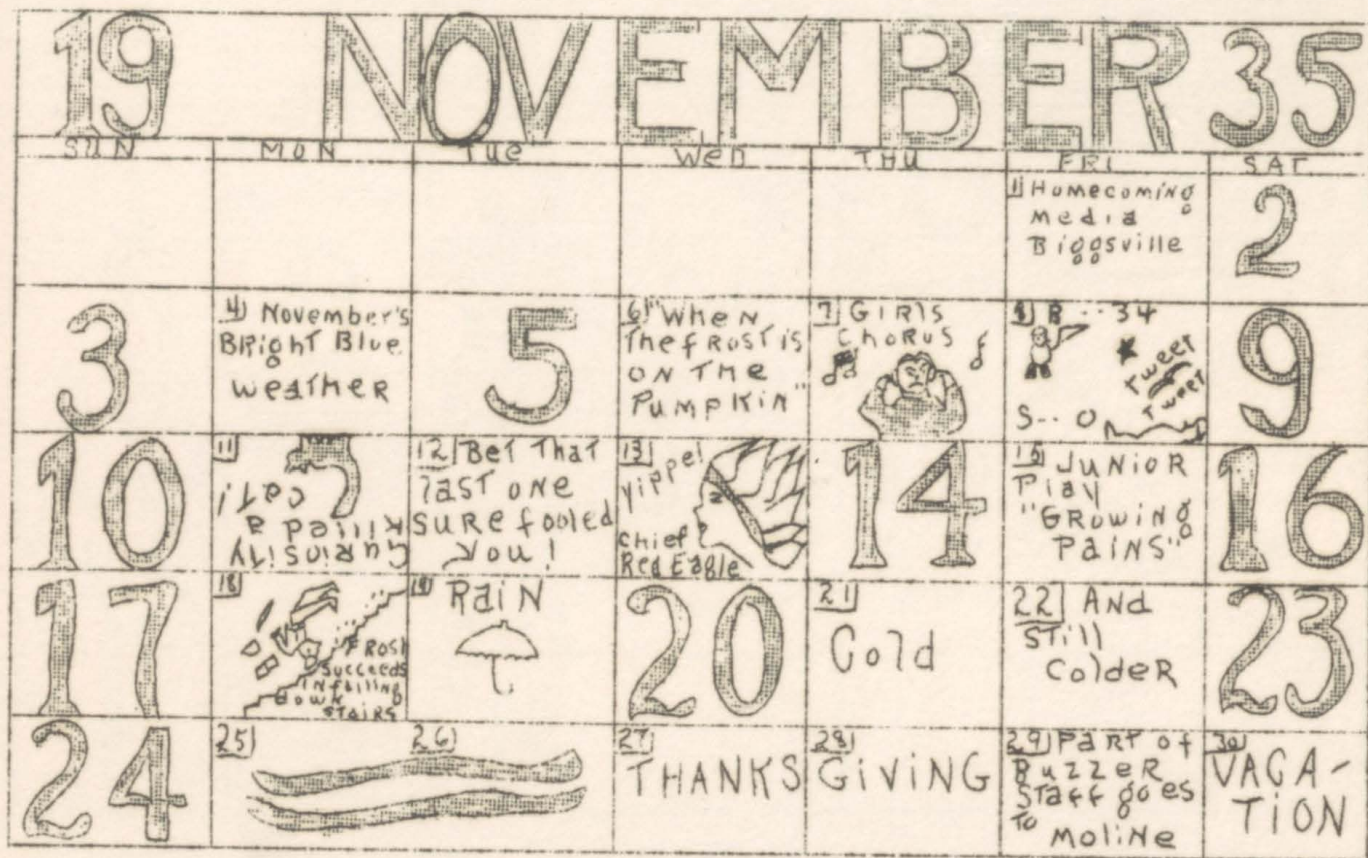 19 NOVEMBER 35
SUN MON TUE WED THU FRI SAT
1 Homecoming
Media
Biggsville
2
3
4 November's
Bright Blue
weather
5
6 "When
The frost is
on the
Pumpkin"
7 Girls
Chorus
8 B - - 34
Tweet
Tweet
S - - 0
9
10
11
Curiosity
killed a
cat!
12 Bet That
last one
sure fooled
you!
13
Yippe!
Chief
Red Eagle
14
15 Junior
Play
"Growing
Pains"
16
17
18
Frosh
Succeeds
in falling
down
stairs
19 Rain
20
21
Cold
22 And
still
Colder
23
24
25
26
27
THANKS
28
GIVING
29 Part of
Buzzer
Staff goes
To
Moline
30
VACA-
TION